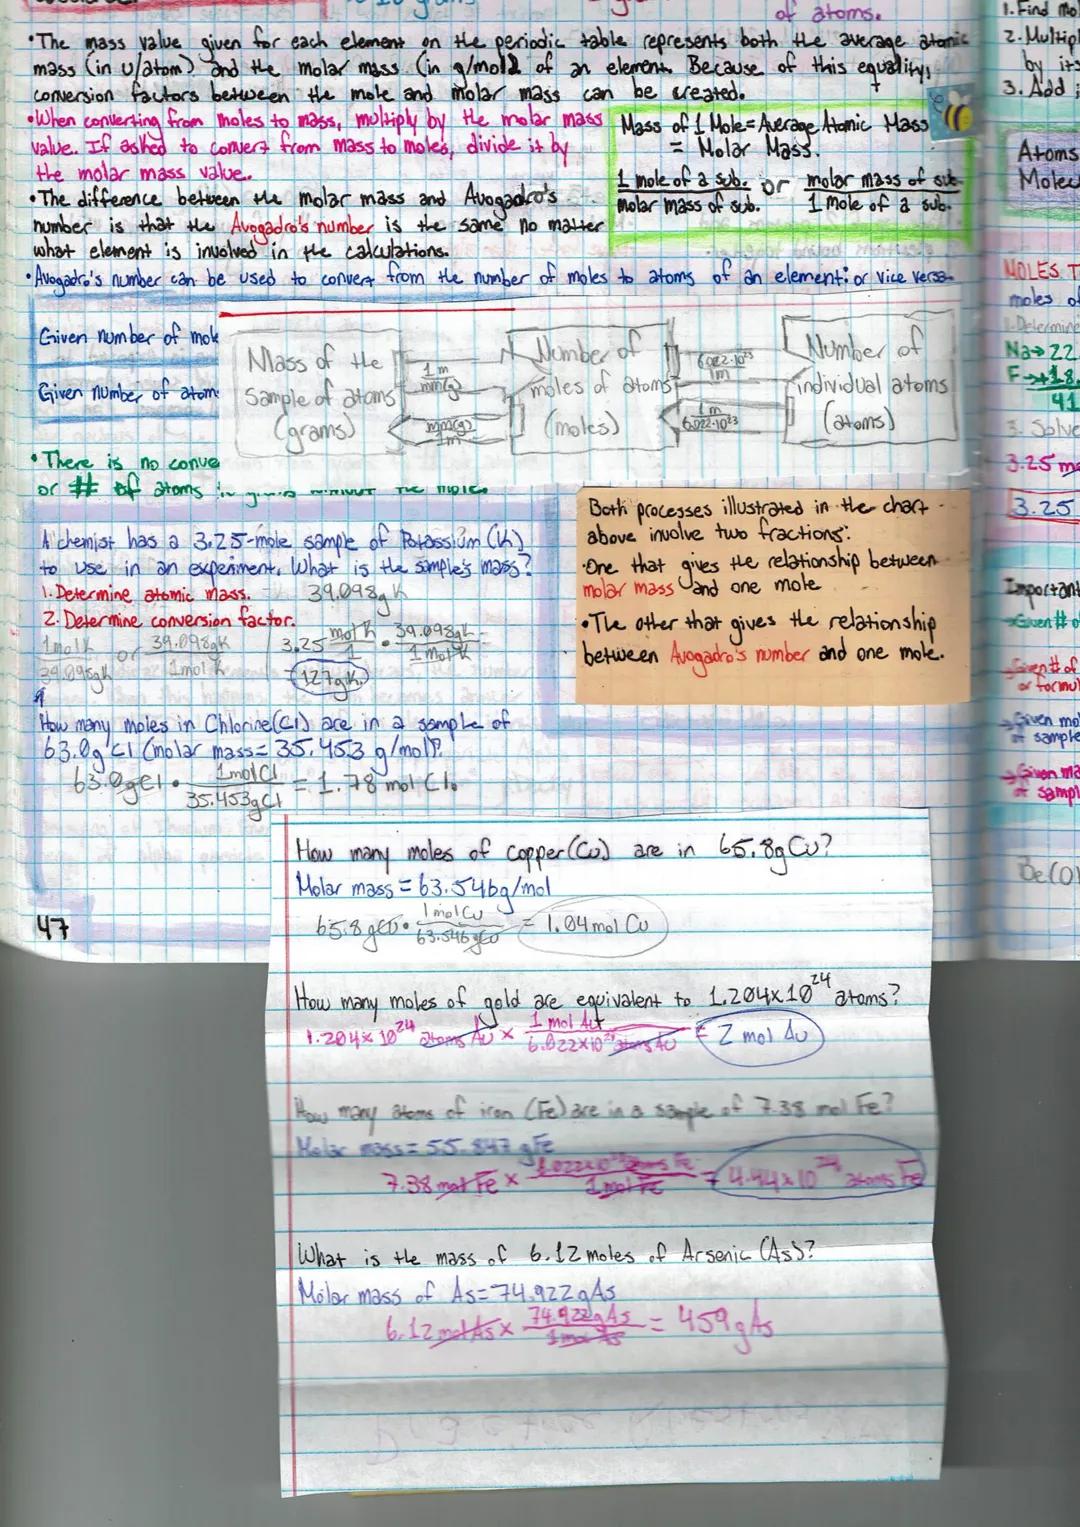 of atoms.
•The mass value given for each element on the periodic table represents both the average atomic
mass (in u/atom) and the molar mass (in g/mol) of an element. Because of this equality,
conversion factors between the mole and molar mass can be created.
•When converting from moles to mass, multiply by the molar mass
value. If asked to convert from mass to moles, divide it by
the molar mass value.
•The difference between the molar mass and Avogadro's
number is that the Avogadro's number is the same no matter
what element is involved in the calculations.
•Avogadro's number can be used to convert from the number of moles to atoms of an element: or vice versa
Mass of 1 Mole=Average Atomic Mass
= Molar Mass.
1 mole of a sub. or molar mass of sub
molar mass of sub. 1 mole of a sub.
Given number of mol
Given number of atom
•There is no conve
or # of atoms
Mass of the
Sample of atoms
(grams)
1m
mm(g)
mm(g)
1m
Number of
moles of atoms
(moles)
6.022·10²³
1m
1m
6.022·10²³
Number of
individual atoms
(atoms)
A chemist has a 3.25-mole sample of Potassium (K)
to use in an experiment. What is the sample's mass?
1. Determine atomic mass. 39.098g K
2. Determine conversion factor.
1molK or 39.098gK 3.25 mol K · 39.098gK =
39.098gK 1mol K 1 1 mol K
127gK
How many moles in Chlorine(Cl) are in a sample of
63.0g Cl (molar mass= 35.453 g/mol)?
63.0gCl · 1molCl = 1.78 mol Cl.
35.453gCl
47
Both processes illustrated in the chart
above involve two fractions:
•One that gives the relationship between
molar mass and one mole
•The other that gives the relationship
between Avogadro's number and one mole.
How many moles of copper(Cu) are in 65.8gCu?
Molar mass = 63.546g/mol
65.8 gCu · 1 molCu = 1.04 mol Cu
63.546 gCu
How many moles of gold are equivalent to 1.204x10²⁴ atoms?
1.204x10²⁴ atoms Au x 1 mol Au = 2 mol Au
6.022x10²³ atoms Au
How many atoms of iron (Fe) are in a sample of 7.38 mol Fe?
Molar mass= 55.847 gFe
7.38 mol Fe x 6.022x10²³ atoms Fe = 4.44x10²⁴ atoms Fe
1 mol Fe
What is the mass of 6.12 moles of Arsenic (As)?
Molar mass of As=74.922gAs
6.12 molAs x 74.922gAs = 459gAs
1 mol As
1. Find mo
2. Multipl
by its
3. Add
Atoms
Molec
MOLES T
moles of
1. Determine
Na→22
F→+18.
41
3. Solve
3.25 mo
3.25
Important
Given # o
Given # of
or formul
Given mo
of sample
Given ma
of sampl